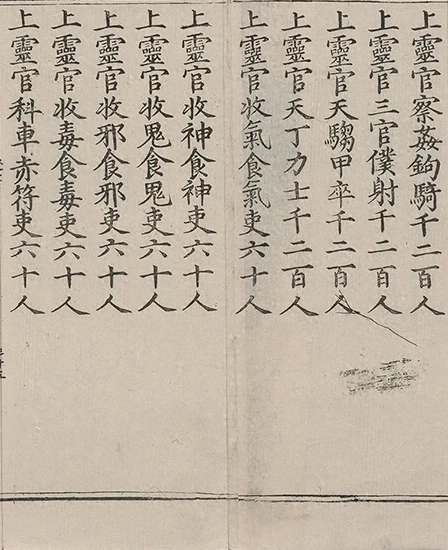 上靈官察姦鉤騎千二百人
上靈官三官僕射千二百人
上靈官天騶甲卒千二百人
上靈官天丁力士千二百人
上靈官收氣食氣吏六十人
上靈官收神食神吏六十人
上靈官收鬼食鬼吏六十人
上靈官收邪食邪吏六十人
上靈官收毒食毒吏六十人
上靈官科車赤符吏六十人